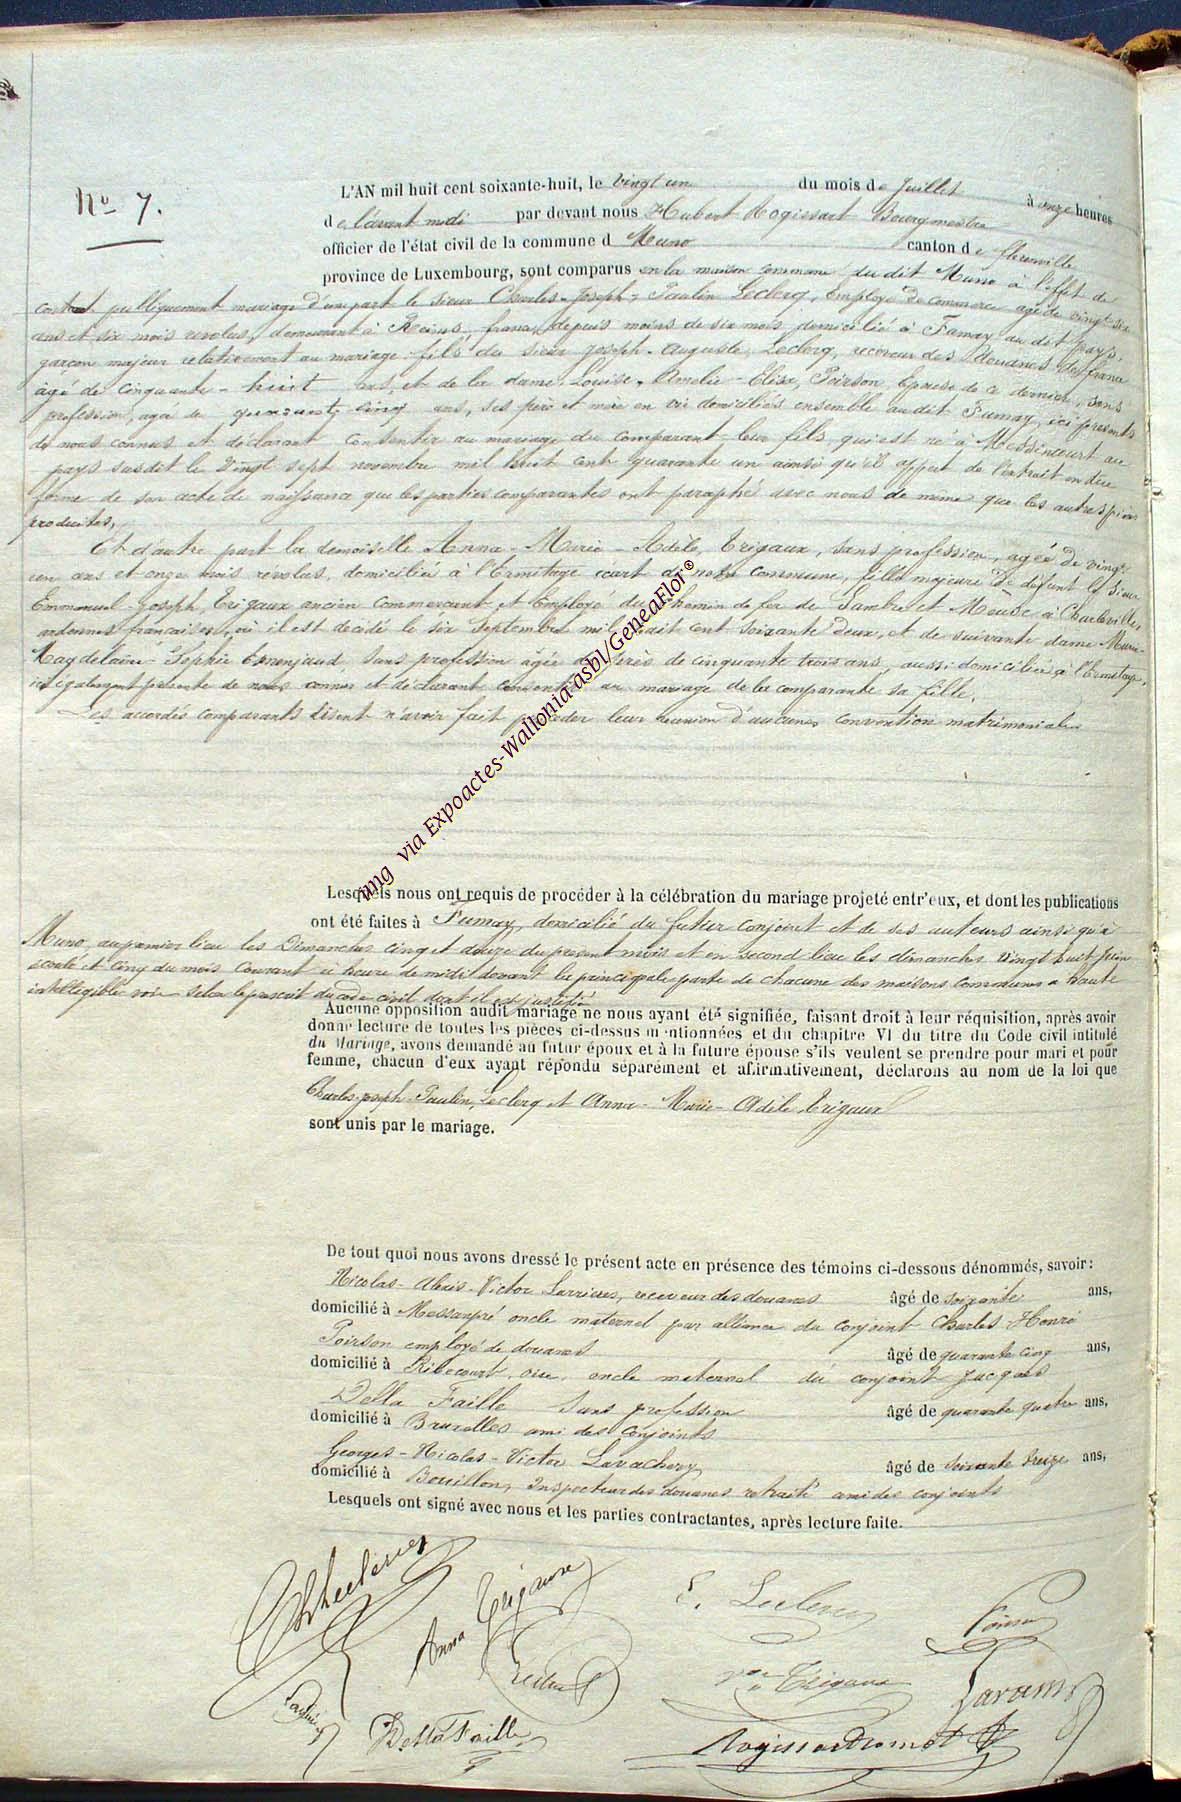 No 7.
L'AN mil huit cent soixante-huit, le vingt un du mois de Juillet à onze heures
de l'avant midi par devant nous Hubert Rogissart Bourgmestre
officier de l'état civil de la commune d Muno canton de florenville
province de Luxembourg, sont comparus en la maison commune du dit Muno à l'effet de
contract publiquement mariage d'une part le sieur Charles-Joseph-Paulin Leclerq, Employé de commerce agé de vingt six
ans et six mois revolus, demeurant à Reims, france, depuis moins de six mois domicilié à Fumay au dit pays,
garçon majeur relativement au mariage fils du sieur Joseph-Auguste, Leclerq, receveur des douanes de france
âgé de cinquante-huit ans et de la dame Louise-Amelie-Elise, Poirson, Epouse de ce dernier, sans
profession, agée de quarante cinq ans, ses père et mère en vie domiciliés ensemble au dit Fumay, ici présents
de nous connus et déclarant consentir au mariage du comparant leur fils, qui est né à Messincourt au
pays susdit le vingt sept novembre mil huit cent quarante un ainsi qu'il appert de l'extrait en due
forme de son acte de naissance que les parties comparantes ont paraphé avec nous de même que les autres pièces
produites,
Et d'autre part la demoiselle Anna-Marie-Adèle, Trigaux, sans profession, agée de vingt
un ans et onze mois revolus, domiciliée à l'Ermitage écart de notre commune, fille majeure de défunt le sieur
Emmanuel-Joseph, Trigaux ancien commerçant et Employé du chemin de fer de Sambre et Meuse à Charleville,
ardennes françaises, où il est decédé le six Septembre mil huit cent soixante deux, et de suivante dame Marie-
Magdelaine-Sophie sans profession âgée de près de cinquante trois ans, aussi domiciliée à l'Ermitage,
ici également présente de nous connue et déclarant consentir au mariage de la comparante sa fille.
Les accordés comparants disent n'avoir fait précéder leur reunion d'aucunes convention matrimoniales
img via Expoactes-Wallonia asbl/GeneaFlor®
Lesquels nous ont requis de procéder à la célébration du mariage projeté entr'eux, et dont les publications
ont été faites à Fumay, domicilié du futur conjoint et de ses auteurs ainsi qu'à
Muno, au premier lieu les Dimanches cinq et douze du présent mois et en second lieu les dimanches vingt huit Juin
écoulé et cinq du mois courant à heure de midi devant la principale porte de chacune des maisons communes à haute
intelligible voix selon le prescrit du code civil dont il est justifié
Aucune opposition audit mariage ne nous ayant été signifiée, faisant droit à leur réquisition, après avoir
donné lecture de toutes les pièces ci-dessus mentionnées et du chapitre VI du titre du Code civil intitulé
du Mariage, avons demandé au futur époux et à la future épouse s'ils veulent se prendre pour mari et pour
femme, chacun d'eux ayant répondu séparément et affirmativement, déclarons au nom de la loi que
Charles-Joseph-Paulin, Leclerq et Anna-Marie-Adèle Trigaux
sont unis par le mariage.
De tout quoi nous avons dressé le présent acte en présence des témoins ci-dessous dénommés, savoir:
Nicolas-Alexis-Victor receveur des douanes âgé de soixante ans,
domicilié à Messempré oncle maternel par alliance du conjoint Charles-Henri
Poirson employé de douanes âgé de quarante cinq ans,
domicilié à Ribecourt, oise, oncle maternel du conjoint Jacques
Della Faille sans profession âgé de quarante quatre ans,
domicilié à Bruxelles ami des conjoints
Georges-Nicolas-Victor Lavachery âgé de soixante treize ans,
domicilié à Bouillon, Inspecteur des douanes retraité ami des conjoints
Lesquels ont signé avec nous et les parties contractantes, après lecture faite.
Anna Trigaux
E. Leclercq
Poirson
Trigaux
Della Faille